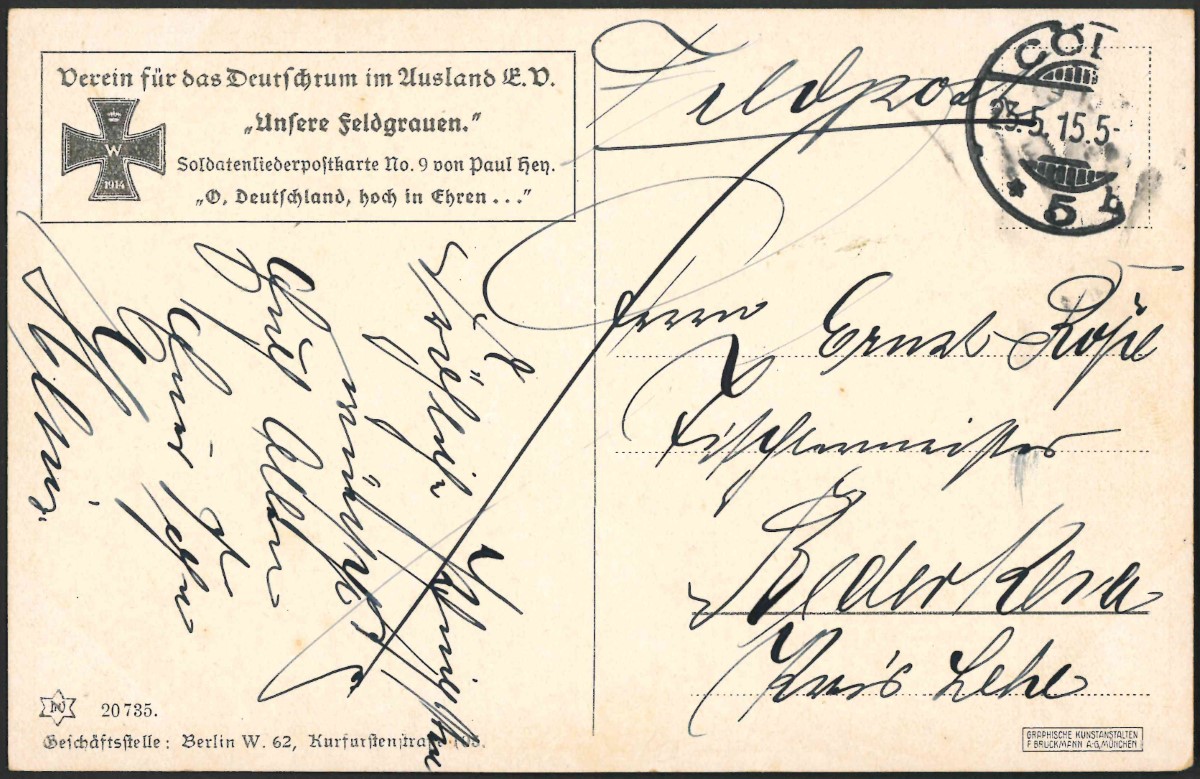 Verein für das Deutschtum im Ausland E.V.
„Unsere Feldgrauen.“
Soldatenliederpostkarte No. 9 von Paul Hey.
„O, Deutschland, hoch in Ehren...“
W
1914
Feldpost
CÖL
23.5.15.5-
* 5 b
Herrn Ernst Rose
Tischlermeister
Bederkesa
Kreis Lehe
Fröhliche Pfingsten
wünscht
Euch Allen
Euer Sohn
20735.
Geschäftsstelle: Berlin W. 62, Kurfürstenstraße 105.
GRAPHISCHE KUNSTANSTALTEN
F. BRUCKMANN A.-G., MÜNCHEN